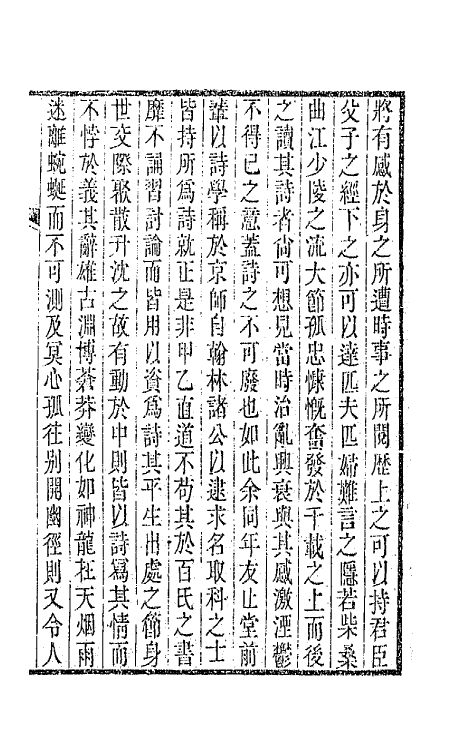 將有感於身之所遭時事之所閱歷上之可以持君臣
父子之經下之亦可以達匹夫匹婦難言之隱若柴桑
曲江少陵之流大節孤忠慷慨奮發於千載之上而後
之讀其詩者尙可想見當時治亂興衰與其感激湮鬱
不得已之意蓋詩之不可廢也如此余同年友止堂前
輩以詩學稱於京師自翰林諸公以逮求名取科之士
皆持所爲詩就正是非甲乙直道不苟其於百氏之書
靡不誦習討論而皆用以資爲詩其平生出處之節身
世交際聚散升沈之故有動於中則皆以詩寫其情而
不悖於義其辭雄古淵博蒼莽變化如神龍在天烟雨
迷離蜿蜒而不可測及冥心孤往别開幽徑則又令人